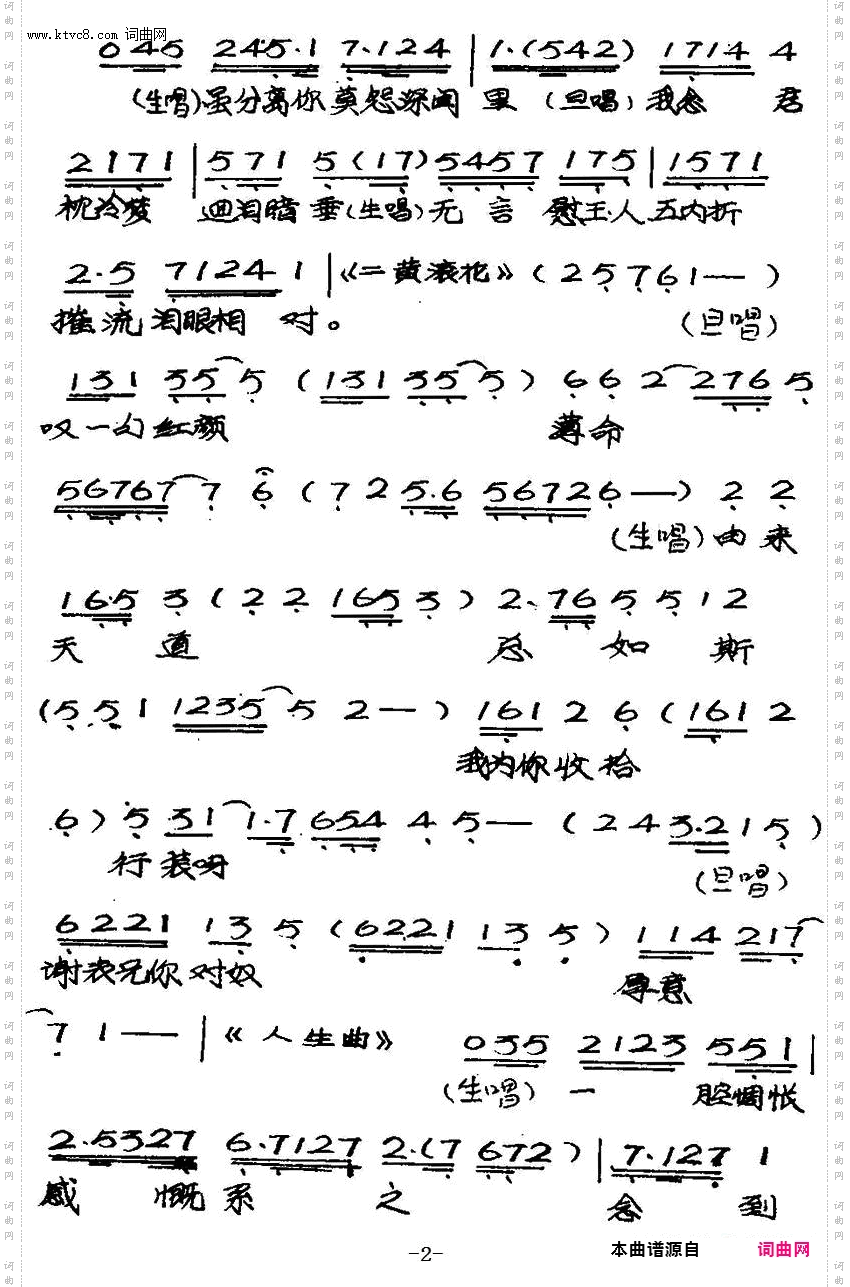 www.ktvc8.com 词曲网
0 4 5 2 4 5 · 1 7 · 1 2 4 | 1 · ( 5 4 2 ) 1 7 1 4 4
(生唱)虽分离你莫怨深闺里 (旦唱)我念 君
2 1 7 1 | 5 7 1 5 ( 1 7 ) 5 4 5 7 1 7 5 | 1 5 7 1
枕冷梦 迴泪暗垂(生唱)无言 慰玉人五内折
2 · 5 7 1 2 4 1 | 《二黄滚花》 ( 2 5 7 6 1 — )
摧流泪眼相 对。 (旦唱)
1 3 1 3 5 5 ( 1 3 1 3 5 5 ) 6 6 2 2 7 6 5
叹一句红颜 薄命
5 6 7 6 7 7 6 ( 7 2 5 · 6 5 6 7 2 6 — ) 2 2
(生唱)由来
1 6 · 5 3 ( 2 2 1 6 5 3 ) 2 · 7 6 5 5 1 2
天 道 总 如 斯
( 5 5 1 1 2 3 5 5 2 — ) 1 6 1 2 6 ( 1 6 1 2
我为你收拾
6 ) 5 3 1 1 · 7 6 5 4 4 5 — ( 2 4 3 · 2 1 5 )
行装呀 (旦唱)
6 2 2 1 1 3 5 ( 6 2 2 1 1 3 5 ) 1 1 4 2 1 7
谢表兄你对奴 厚意
7 1 — | 《人生曲》 0 3 5 2 1 2 3 5 5 1 |
(生唱) 一 腔惆怅
2 · 5 3 2 7 6 · 7 1 2 7 2 · ( 7 6 7 2 ) | 7 · 1 2 7 1
感 慨系 之 念 到
-2- 本曲谱源自 词曲网